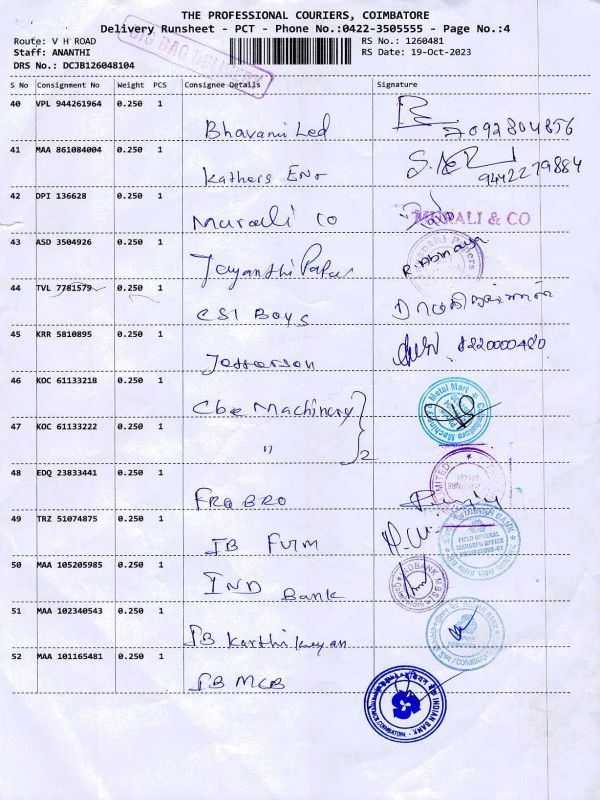 THE PROFESSIONAL COURIERS, COIMBATORE
Delivery Runsheet - PCT - Phone No.:0422-3505555 - Page No.:4
Route: V H ROAD
RS No.: 1260481
Staff: ANANTHI
RS Date: 19-Oct-2023
DRS No.: DCJB126048104
BIG BAG DELIVERY
S No Consignment No Weight PCS Consignee Details Signature
40 VPL 944261964 0.250 1
Bhavani Led
7092804856
41 MAA 861084004 0.250 1
Kathers Enr
9442279884
42 DPI 136628 0.250 1
Murali Co
MURALI & CO
43 ASD 3504926 0.250 1
Jayanthi Papers
R. Abinaya
44 TVL 7781579 0.250 1
CSI Boys
45 KRR 5810895 0.250 1
Jefferson
8220000480
46 KOC 61133218 0.250 1
Cbe Machinery
47 KOC 61133222 0.250 1
"
2
48 EDQ 23833441 0.250 1
FRQ BRO
49 TRZ 51074875 0.250 1
IB Furm
INDIAN BANK
FIELD GENERAL
MANAGER OFFICE
COIMBATORE-01
50 MAA 105205985 0.250 1
IND Bank
51 MAA 102340543 0.250 1
IB Karthikeyan
52 MAA 101165481 0.250 1
IB MCB
INDIAN BANK